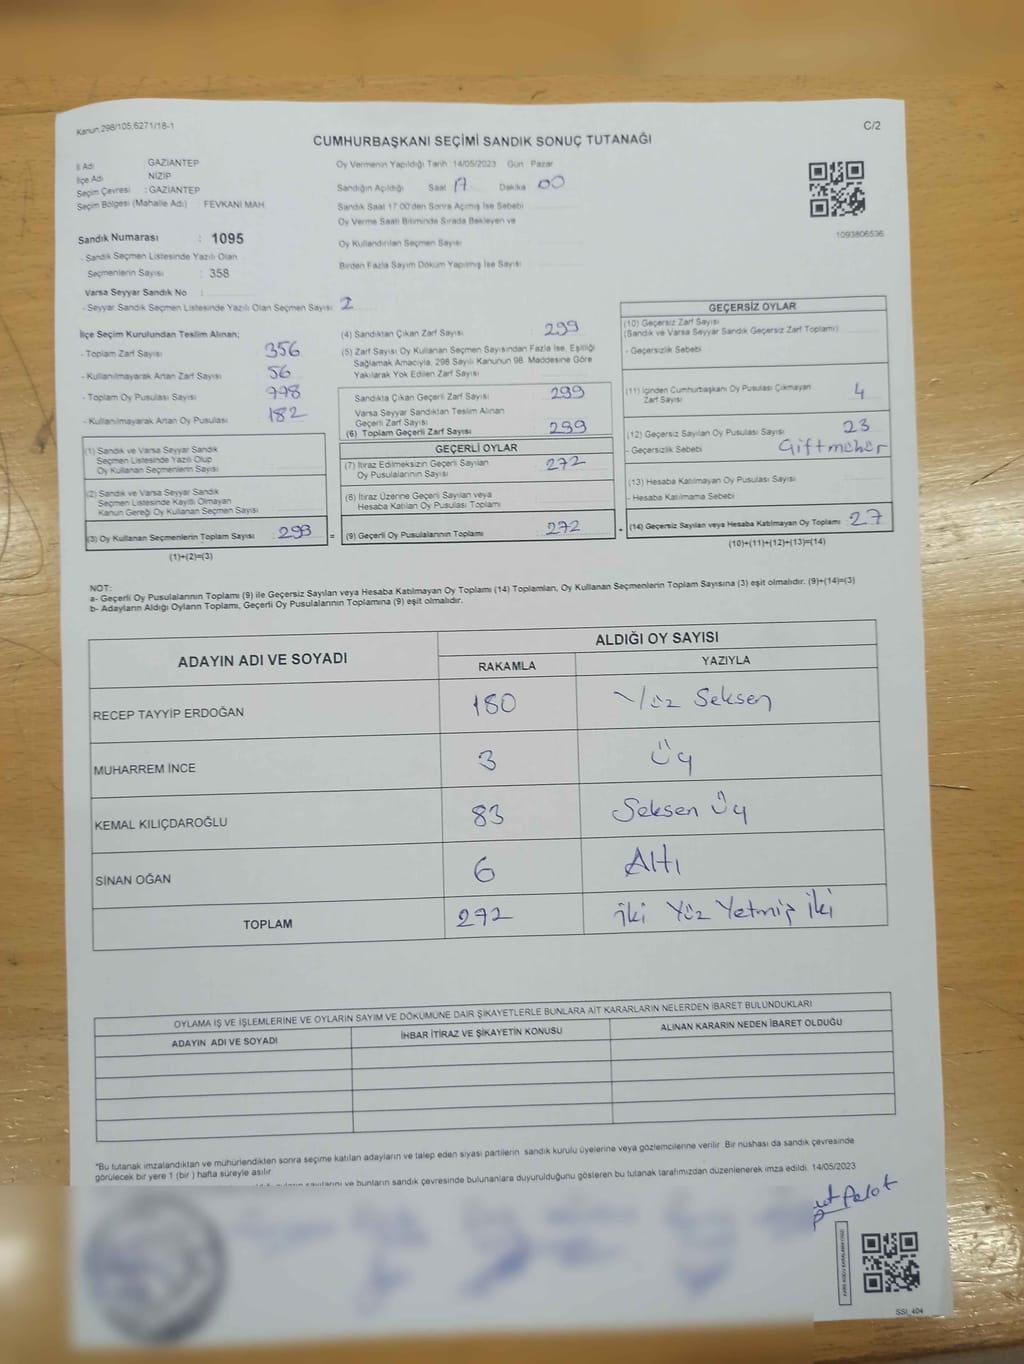 Kanun 298/105,6271/18-1
C/2
CUMHURBAŞKANI SEÇİMİ SANDIK SONUÇ TUTANAĞI
İl Adı GAZİANTEP
İlçe Adı NİZİP
Seçim Çevresi : GAZİANTEP
Seçim Bölgesi (Mahalle Adı) : FEVKANİ MAH.
Sandık Numarası : 1095
- Sandık Seçmen Listesinde Yazılı Olan
Seçmenlerin Sayısı : 358
Varsa Seyyar Sandık No :
- Seyyar Sandık Seçmen Listesinde Yazılı Olan Seçmen Sayısı: 2
Oy Vermenin Yapıldığı Tarih :14/05/2023 Gün : Pazar
Sandığın Açıldığı Saat 17 Dakika 00
Sandık Saat 17:00'den Sonra Açmış İse Sebebi
Oy Verme Saati Bitiminde Sırada Bekleyen ve
Oy Kullandırılan Seçmen Sayısı
Birden Fazla Sayım Döküm Yapılmış İse Sayısı
1093806536
İlçe Seçim Kurulundan Teslim Alınan;
- Toplam Zarf Sayısı 356
- Kullanılmayarak Artan Zarf Sayısı 56
- Toplam Oy Pusulası Sayısı 448
- Kullanılmayarak Artan Oy Pusulası 182
(1) Sandık ve Varsa Seyyar Sandık
Seçmen Listesinde Yazılı Olup
Oy Kullanan Seçmenlerin Sayısı
(2) Sandık ve Varsa Seyyar Sandık
Seçmen Listesinde Kayıtlı Olmayan
Kanun Gereği Oy Kullanan Seçmen Sayısı
(3) Oy Kullanan Seçmenlerin Toplam Sayısı 299 =
(1)+(2)=(3)
(4) Sandıktan Çıkan Zarf Sayısı 299
(5) Zarf Sayısı Oy Kullanan Seçmen Sayısından Fazla İse, Eşitliği
Sağlamak Amacıyla, 298 Sayılı Kanunun 98. Maddesine Göre
Yakılarak Yok Edilen Zarf Sayısı
Sandıkta Çıkan Geçerli Zarf Sayısı 299
Varsa Seyyar Sandıktan Teslim Alınan
Geçerli Zarf Sayısı
(6) Toplam Geçerli Zarf Sayısı 299
GEÇERLİ OYLAR
(7) İtiraz Edilmeksizin Geçerli Sayılan
Oy Pusulalarının Sayısı 272
(8) İtiraz Üzerine Geçerli Sayılan veya
Hesaba Katılan Oy Pusulası Toplamı
(9) Geçerli Oy Pusulalarının Toplamı 272 +
GEÇERSİZ OYLAR
(10) Geçersiz Zarf Sayısı
(Sandık ve Varsa Seyyar Sandık Geçersiz Zarf Toplamı)
- Geçersizlik Sebebi
(11) İçinden Cumhurbaşkanı Oy Pusulası Çıkmayan
Zarf Sayısı 4
(12) Geçersiz Sayılan Oy Pusulası Sayısı 23
- Geçersizlik Sebebi Giftmühür
(13) Hesaba Katılmayan Oy Pusulası Sayısı
- Hesaba Katılmama Sebebi
(14) Geçersiz Sayılan veya Hesaba Katılmayan Oy Toplamı 27
(10)+(11)+(12)+(13)=(14)
NOT:
a- Geçerli Oy Pusulalarının Toplamı (9) ile Geçersiz Sayılan veya Hesaba Katılmayan Oy Toplamı (14) Toplamları, Oy Kullanan Seçmenlerin Toplam Sayısına (3) eşit olmalıdır. (9)+(14)=(3)
b- Adayların Aldığı Oyların Toplamı, Geçerli Oy Pusulalarının Toplamına (9) eşit olmalıdır.
ADAYIN ADI VE SOYADI
ALDIĞI OY SAYISI
RAKAMLA YAZIYLA
RECEP TAYYİP ERDOĞAN 180 Yüz Seksen
MUHARREM İNCE 3 Üç
KEMAL KILIÇDAROĞLU 83 Seksen Üç
SİNAN OĞAN 6 Altı
TOPLAM 272 iki Yüz Yetmiş İki
OYLAMA İŞ VE İŞLEMLERİNE VE OYLARIN SAYIM VE DÖKÜMÜNE DAİR ŞİKAYETLERLE BUNLARA AİT KARARLARIN NELERDEN İBARET BULUNDUKLARI
ADAYIN ADI VE SOYADI İHBAR İTİRAZ VE ŞİKAYETİN KONUSU ALINAN KARARIN NEDEN İBARET OLDUĞU
*Bu tutanak imzalandıktan ve mühürlendikten sonra seçime katılan adayların ve talep eden siyasi partilerin sandık kurulu üyelerine veya gözlemcilerine verilir. Bir nüshası da sandık çevresinde
görülecek bir yere 1 (bir ) hafta süreyle asılır.
sayılarını ve bunların sandık çevresinde bulunanlara duyurulduğunu gösteren bu tutanak tarafımızdan düzenlenerek imza edildi. 14/05/2023
SSİ_404